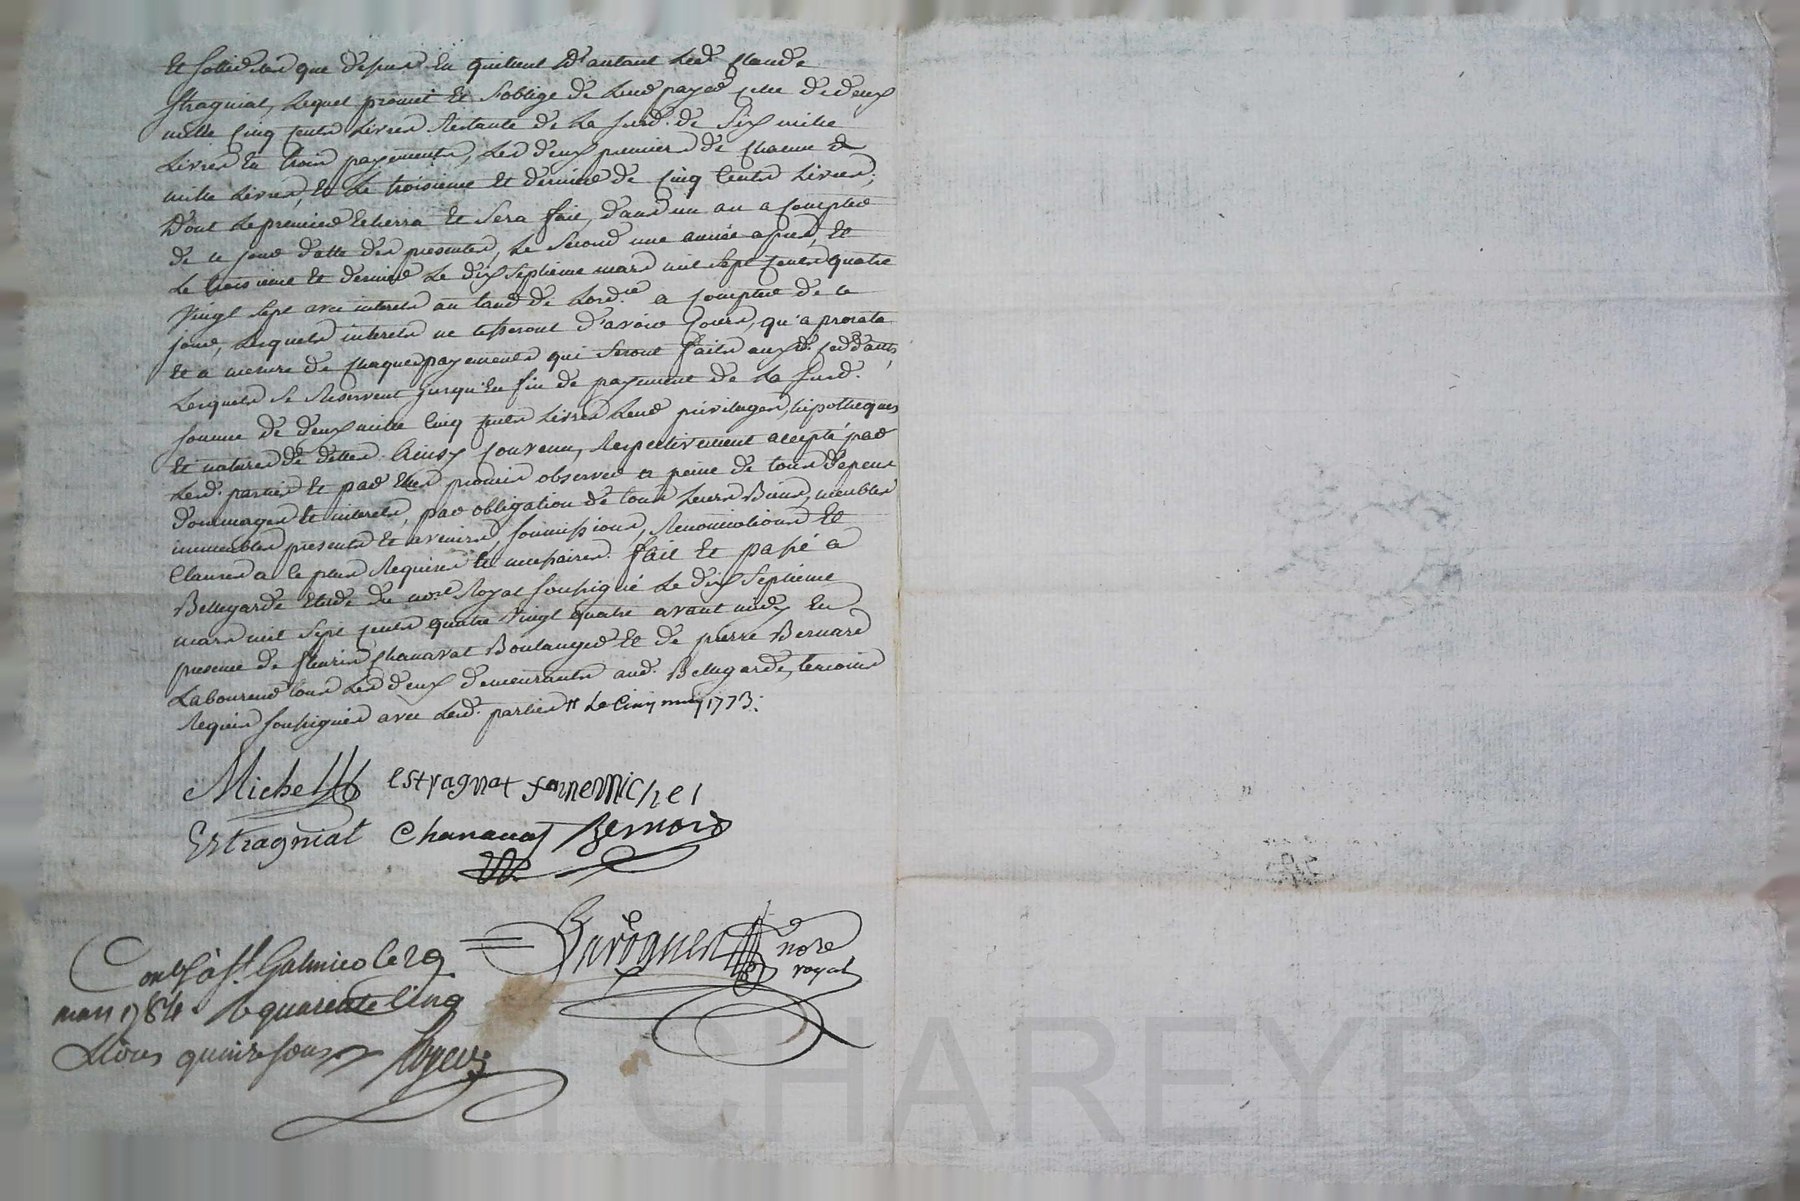 Et Sollidaire que dessus En quittent d'autant led. Claude
Estragniat, Lequel promet Et S'oblige de Leur payer celle de deux
mille Cinq cents Livres Restante de La susd. de Six mille
Livres En trois payements, Les deux premiers de Chacun
mille Livres, Et Le troisieme Et dernier de Cinq Cents Livres;
Dont Le premier Echerra Et Sera fait, dans un an a Compter
de ce jour datte des presentes, Le Second une année apres, Et
Le troisieme Et dernier Le dix Septieme mars mil Sept Cents quatre
Vingt Sept avec interets au taux de Lord.ce a Compter de ce
jour, Lesquels interets ne Cesseront d'avoir Cours, qu'a prorata
Et a mesure de Chaque payements qui Seront faits aux d. Ceddants,
Lesquels Se Reservent jusqu'En fin de payement de La Susd.
Somme de deux mille Cinq Cents Livres Leurs privileges, hipotheques
Et natures de dettes. Ainsy Convenu, Respectivement accepté par
Lesd. parties Et par Elles promis observer a peine de tous depens
dommages Et interets, par obligation de tous Leurs Biens, meubles
immeubles presents Et avenirs, Soumissions, Renonciations Et
Clauses a ce plus Requises Et necessaires. fait Et passé a
Bellegarde Etude du no.re Royal Soussigné Le dix Septieme
mars mil Sept Cents quatre Vingt quatre avant midy En
presence de fleurie Chanavat Boulanger Et de pierre Bernard
Laboureur tous Les deux demeurants aud. Bellegarde, temoins
Requis Soussignés avec Lesd. parties Le Cinq may 1773.
Michel estragnat fanne Michel
Estragniat Chanavat Bernard
nore
royal
Con.lé à St. Galmier le 29
mars 1784. R quarente Cinq
Livres quinze sous
CHAREYRON